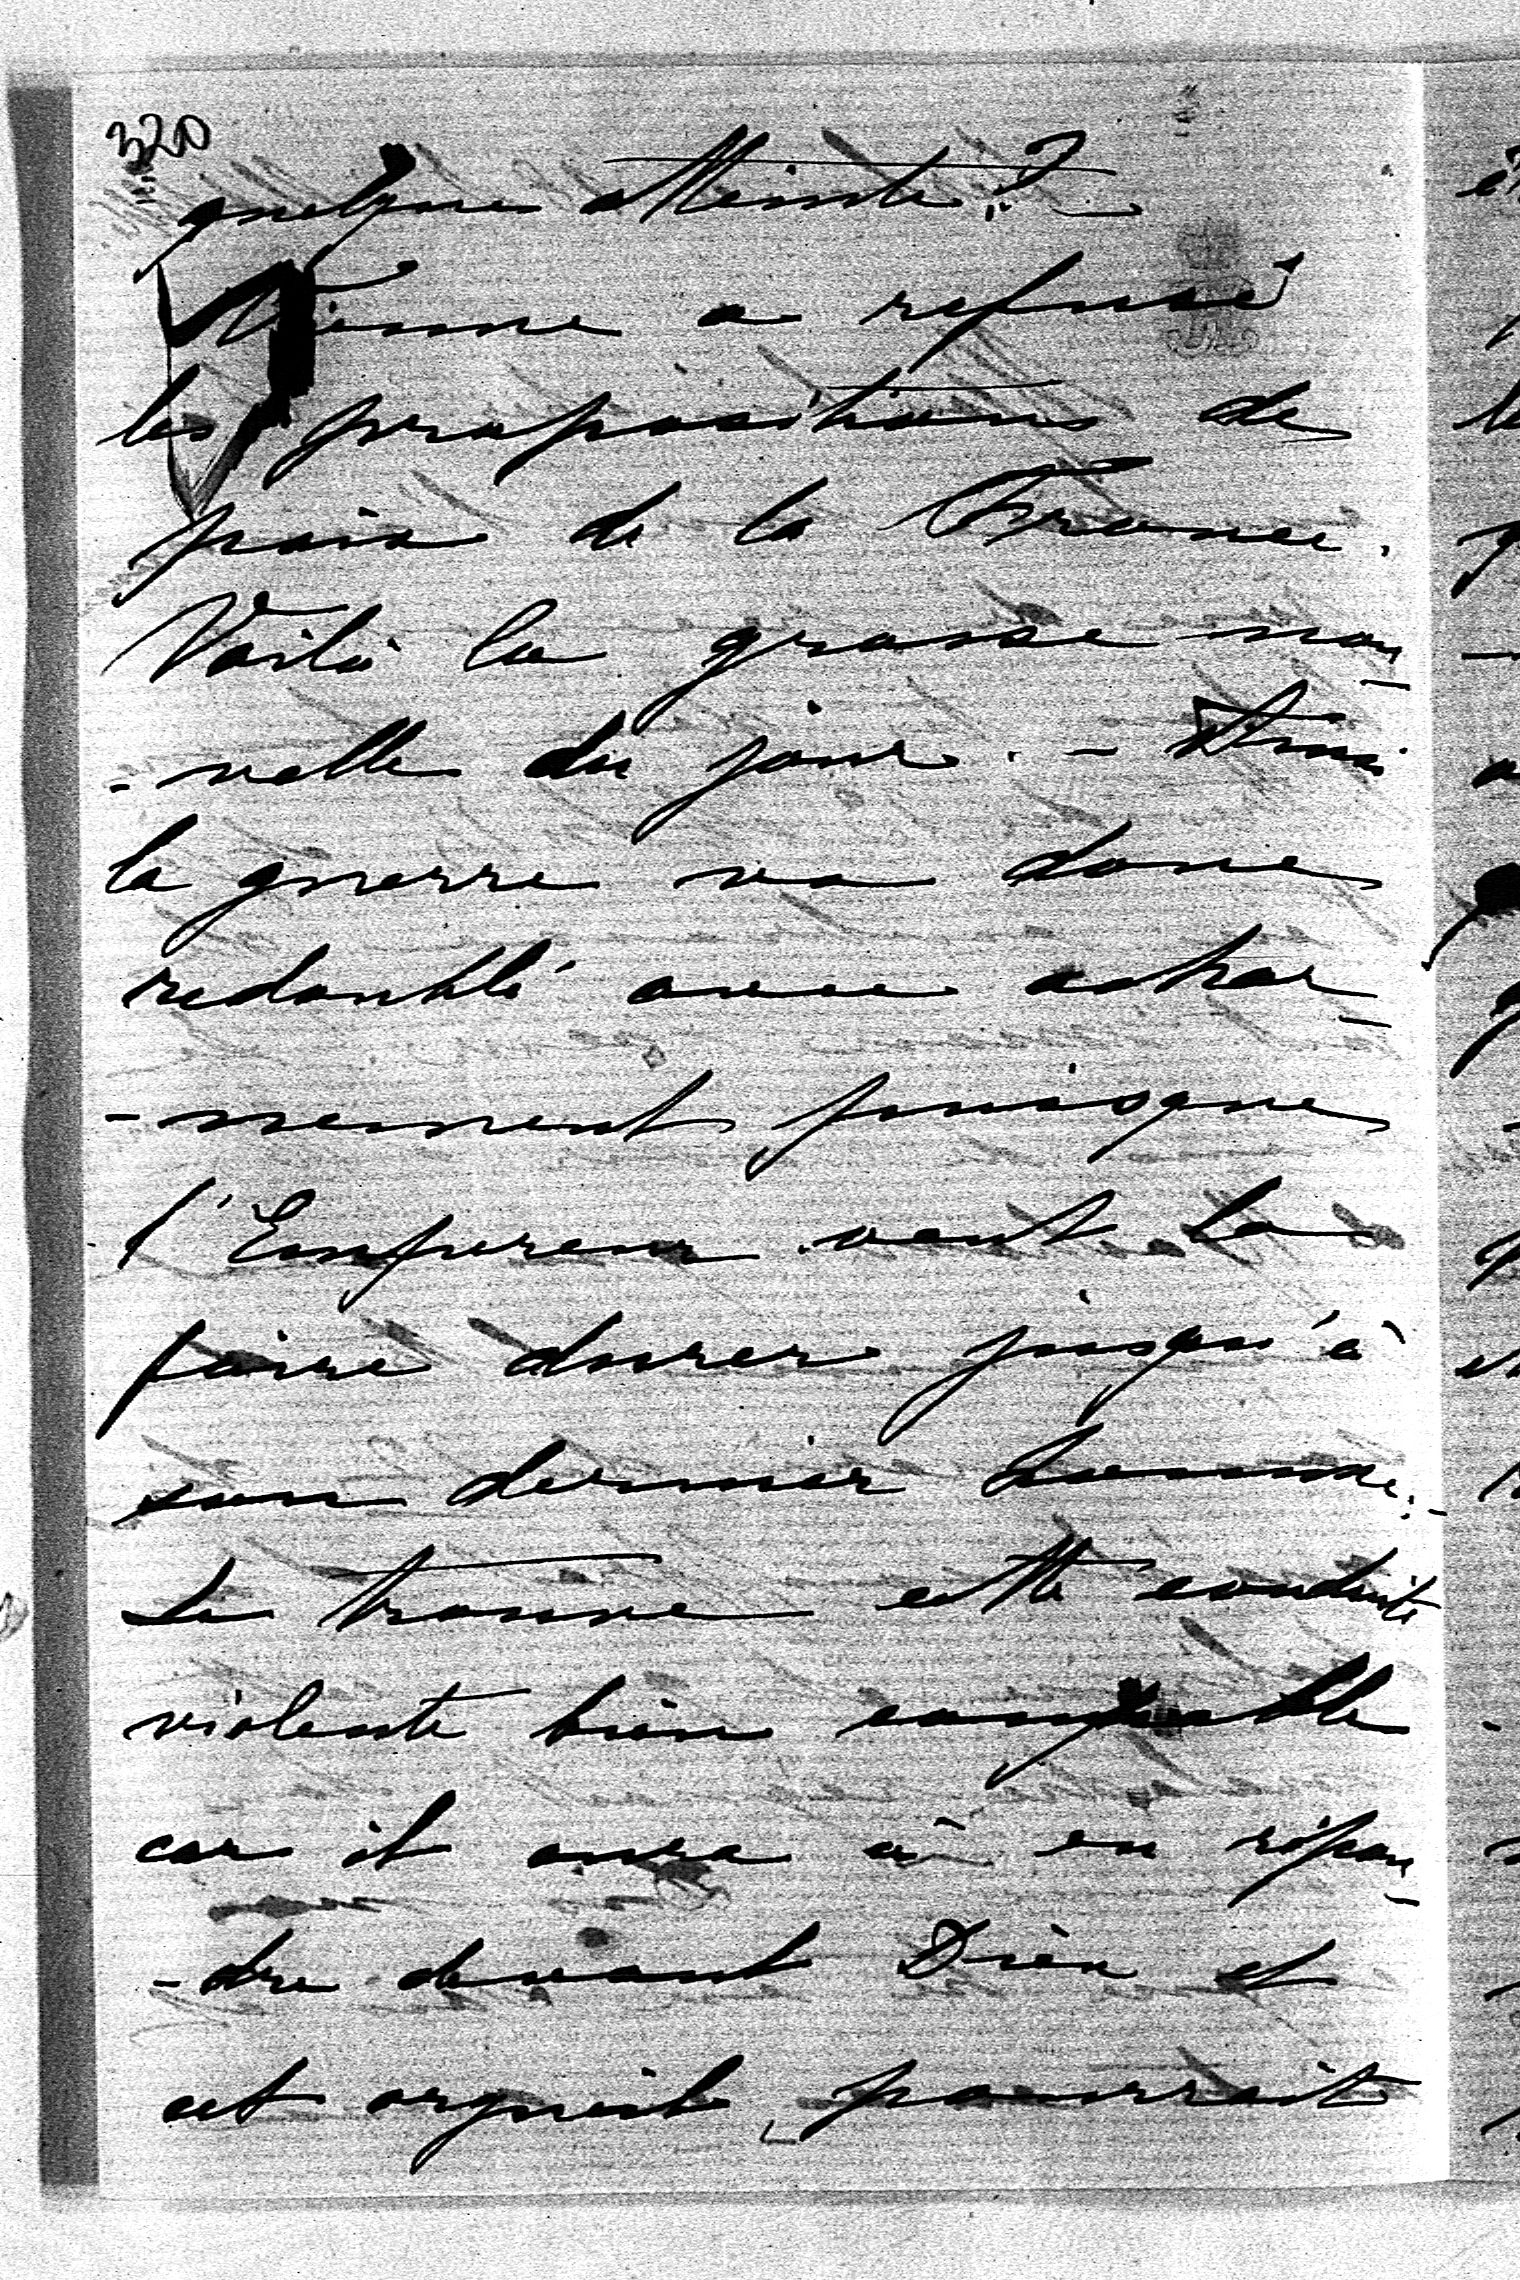 320
quelque atteinte ?
Vienne a refusé
les propositions de
paix de la France.
Voilà la grosse nou-
-velle du jour. - Ainsi
la guerre va donc
redoublé avec achar-
-nement puisque
l'Empereur veut la
faire durer jusqu'à
son dernier homme. -
Je trouve cette conduite
violente bien coupable
car il aura à en répon-
-dre devant Dieu et
cet orgueil pourrait